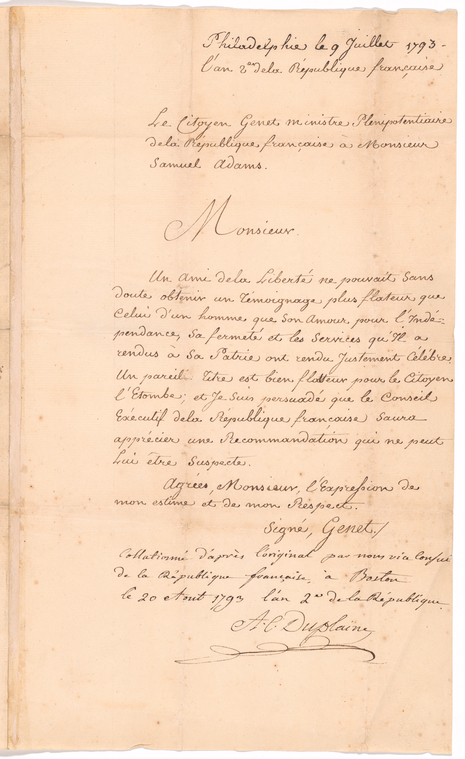 Philadelphie le 9 Juillet 1793-
l'an 2.e de la République française
Le Citoyen Genet ministre Plenipotentiaire
de la République française à Monsieur
Samuel Adams.
Monsieur.
Un Ami de la Liberté ne pouvait Sans
doute obtenir un Temoignage plus flateur que
Celui d'un homme que Son Amour pour l'Indé=
pendance, Sa fermeté et les Services qu'Il a
rendus à Sa Patrie ont rendu Justement Celébre.
Un pareil Titre est bien flatteur pour le Citoyen
l'Etombe; et Je Suis persuadé que le Conseil
Exécutif de la République française Saura
apprécier une Recommandation qui ne peut
Lui être Suspecte.
Agréés, Monsieur, l'Expression de
mon estime et de mon Respect.
Signé, Genet./
Collationné d'après l'original par nous vice Consul
de la République française, à Boston
le 20 Aout 1793 l'an 2.e de la République.
A. C. Duplaine